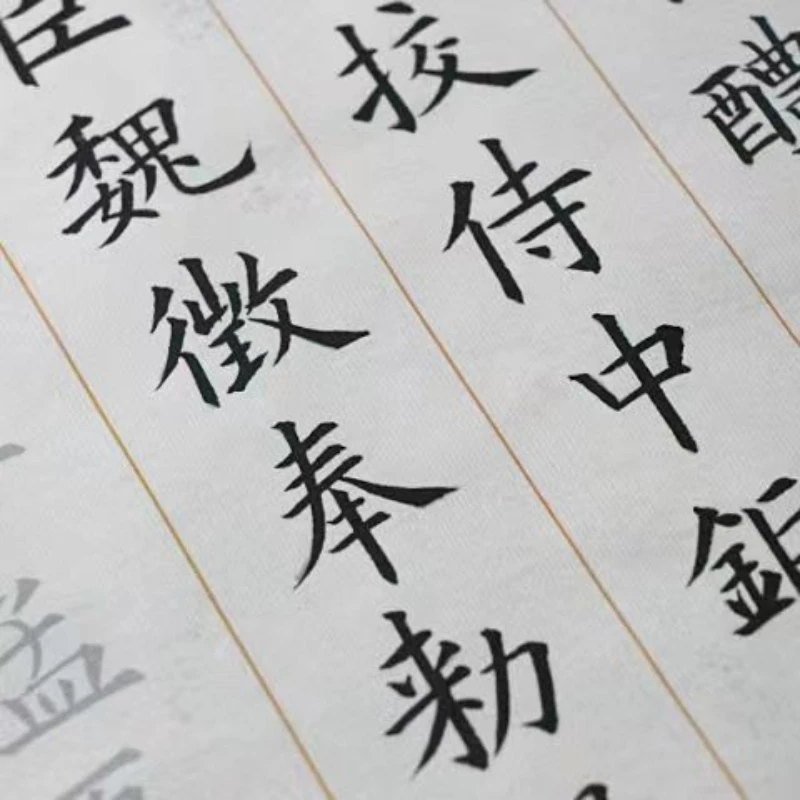 醴
挍侍中鉅
臣魏徵奉勑
孟